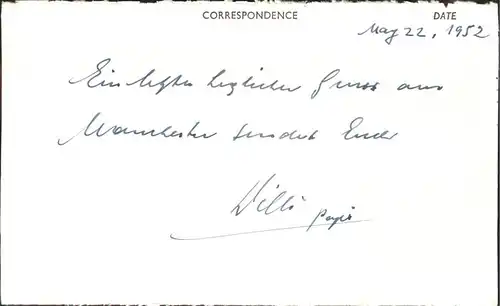 CORRESPONDENCE DATE
May 22, 1952
Ein letzter herzlicher Gruss aus
Manchester sendet Euer
Willi